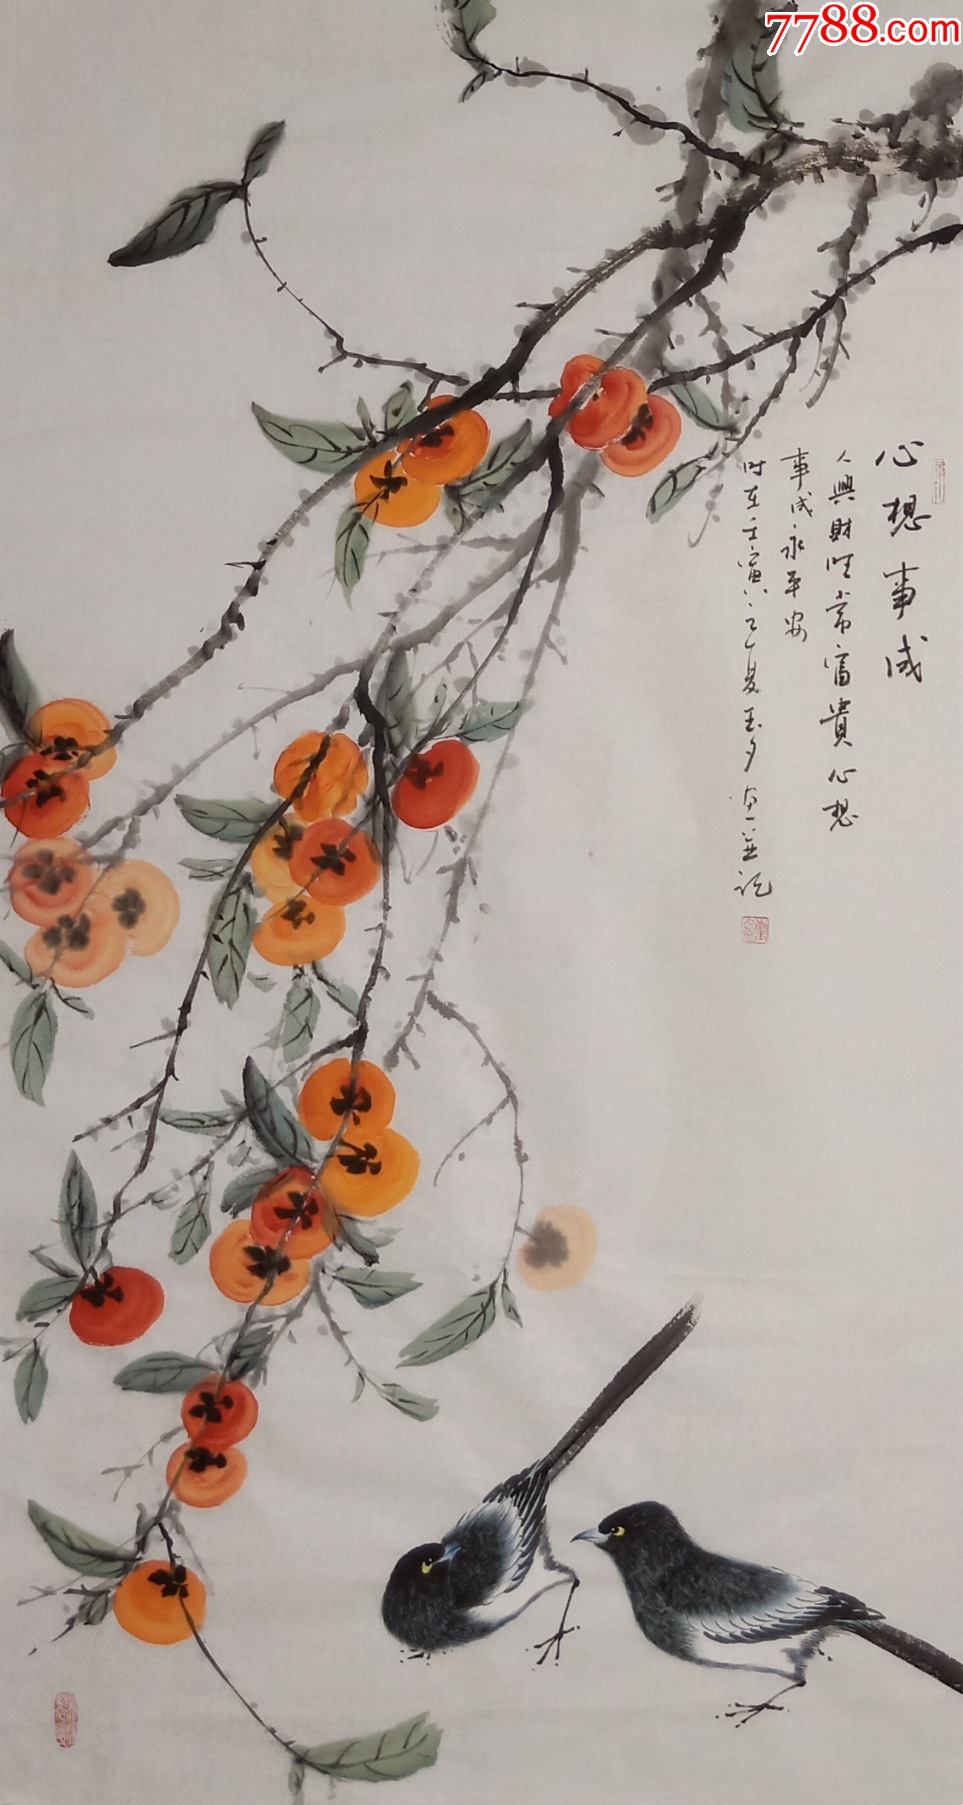 7788.com
心想事成
人興財旺常富貴心想
事成永平安
时在壬寅之夏玉夕画並记